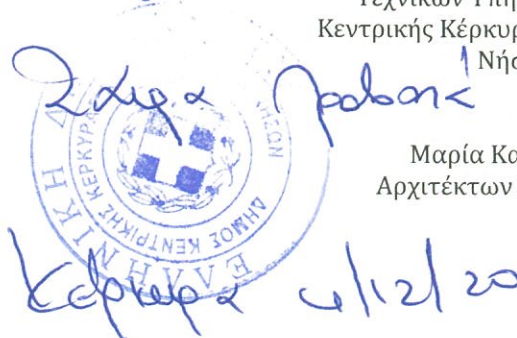 Τεχνικών Υπη
Κεντρικής Κέρκυρ
Νήσ
Μαρία Κα
Αρχιτέκτων
ΕΛΛΗΝΙΚΗ Δ
ΔΗΜΟΣ ΚΕΝΤΡΙΚΗΣ ΚΕΡΚΥΡΑ
Κέρκυρα 4/12/20